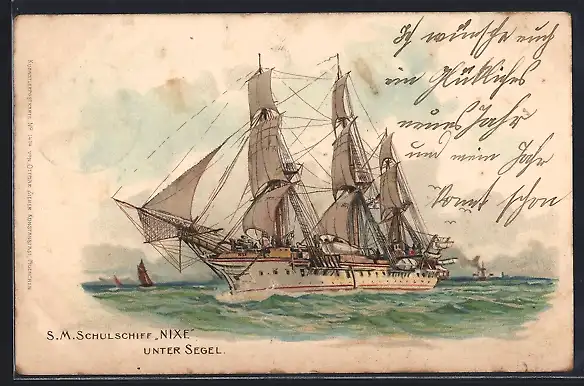 Ich wünsche euch
ein glükliches
neues Jahr
und mein Jahr
kommt schon
S.M. SCHULSCHIFF „NIXE“
UNTER SEGEL.